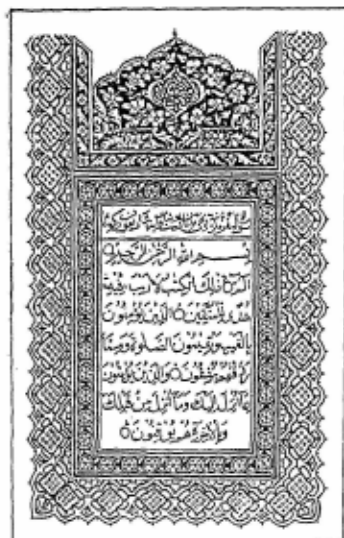 بسم الله الرحمن الرحيم
الم ذلك الكتب لا ريب فيه
هدى للمتقين ٥ الذين يؤمنون
بالغيب ويقيمون الصلوة ومما
رزقنهم ينفقون ٥ والذين يؤمنون
بما انزل اليك وما انزل من قبلك
وبالاخرة هم يوقنون ٥